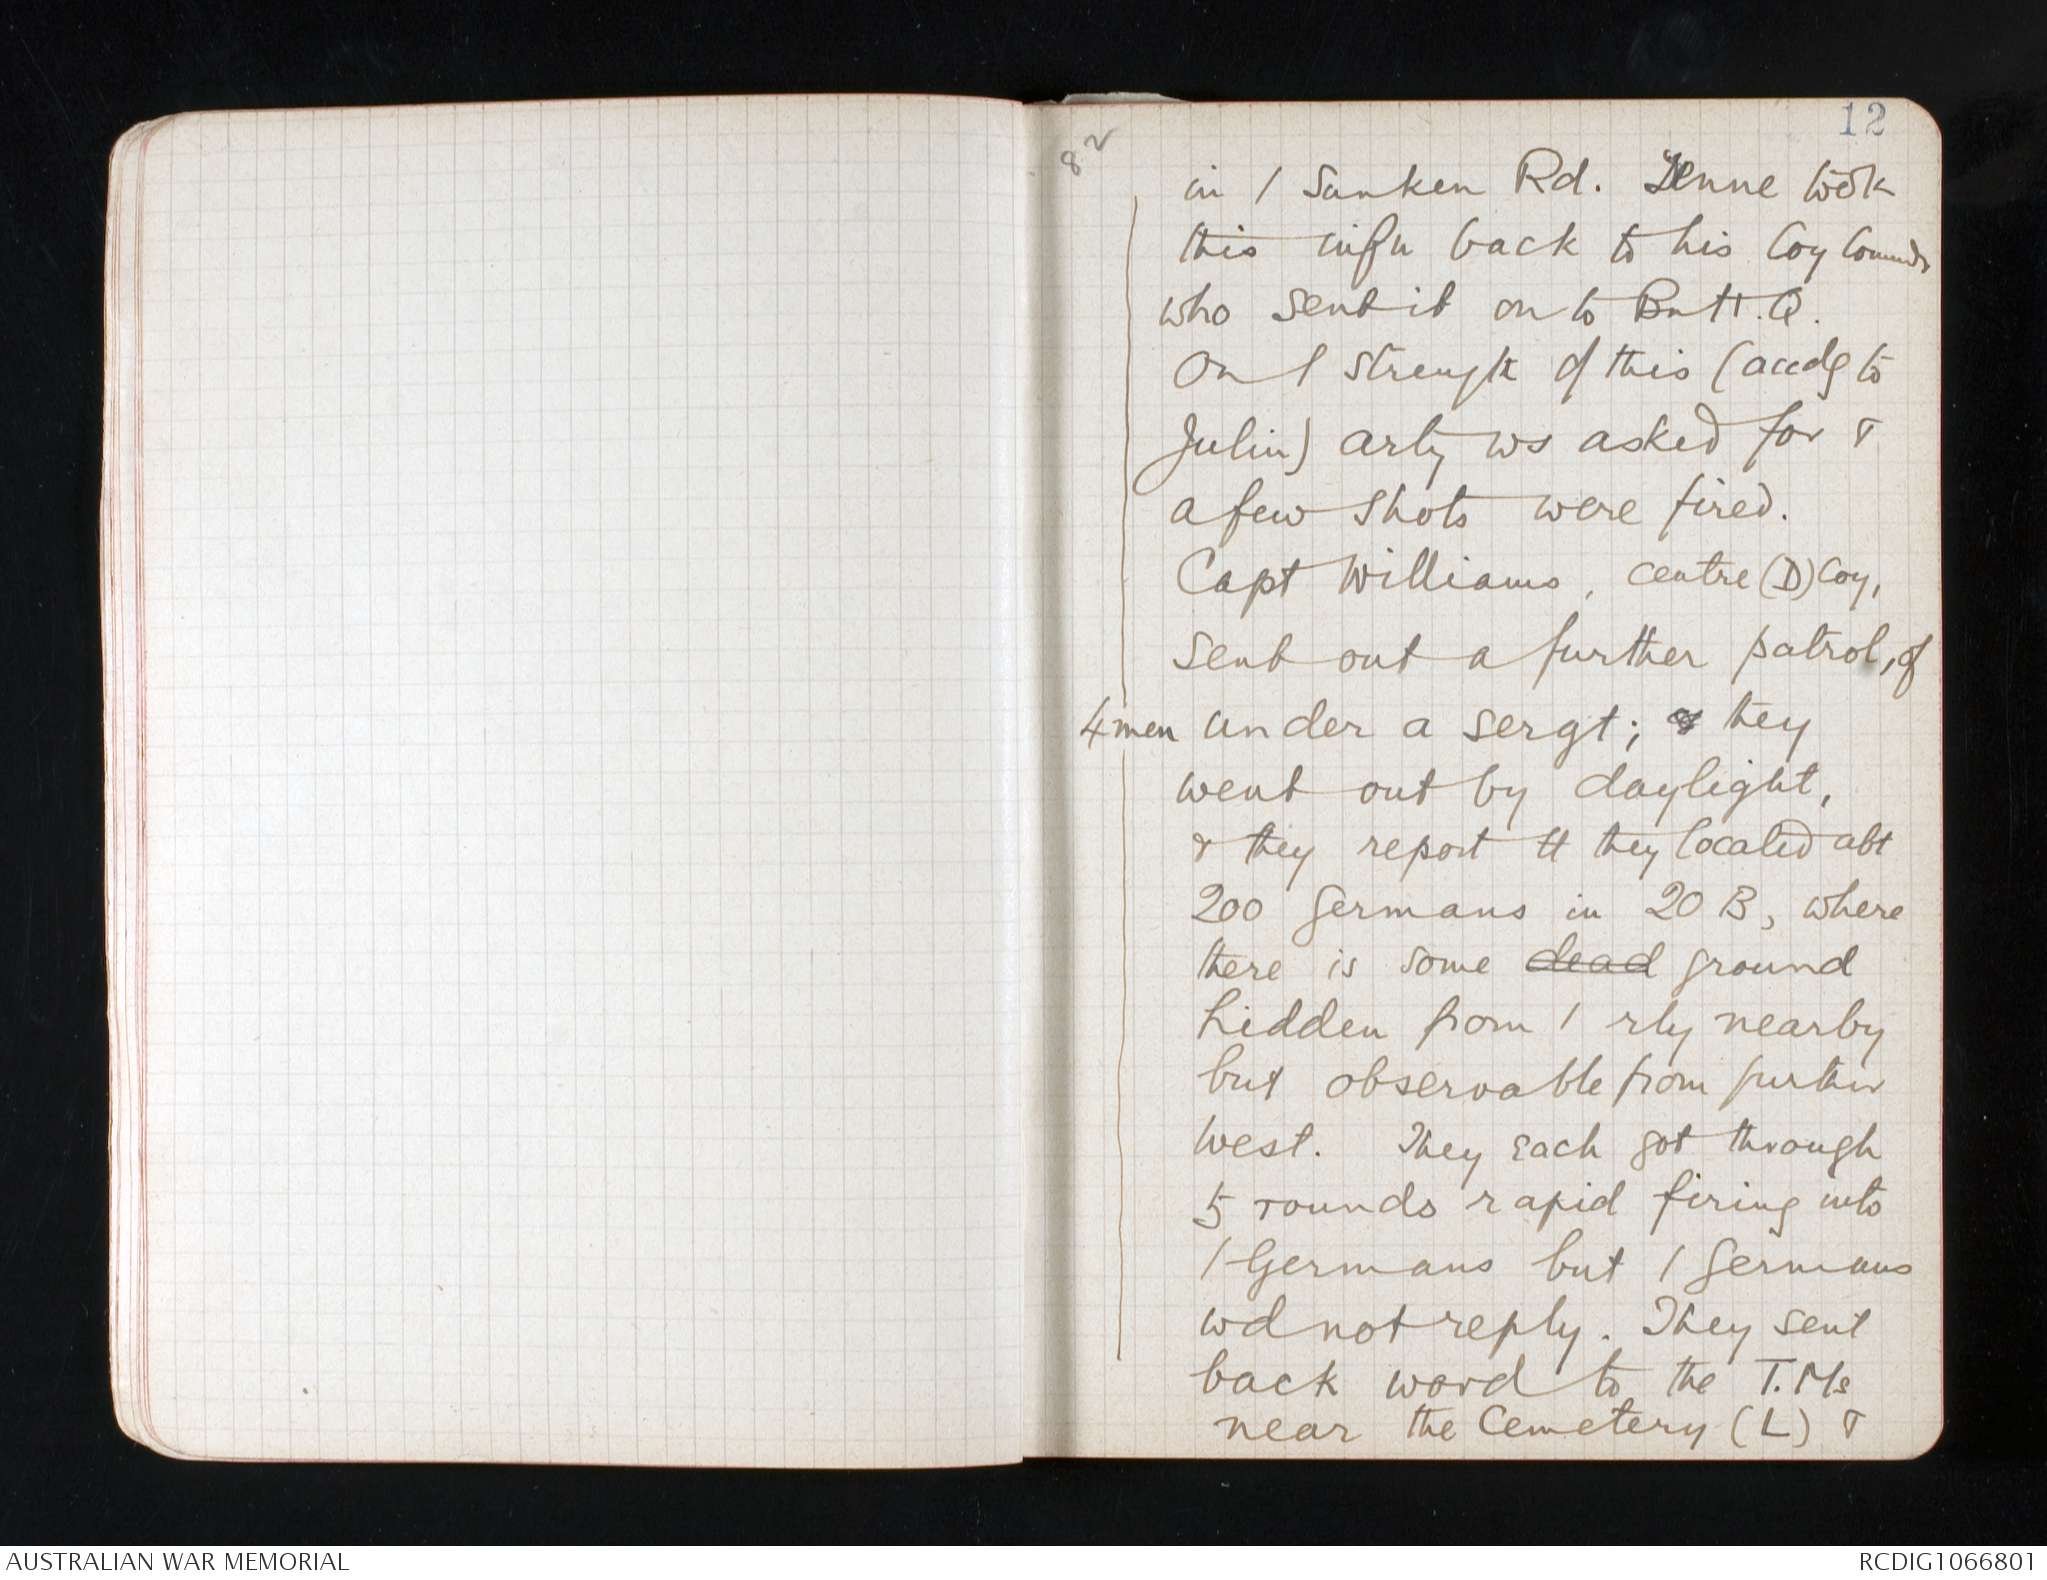 12
82
in / Sunken Rd. Denne took
this infn back to his Coy Commdr
who sent it on to Bn H.Q.
On / strength of this (accdg to
Julin) arty ws asked for &
a few shots were fired.
Capt Williams, centre (D) Coy,
sent out a further patrol, of
4 men under a sergt; & they
went out by daylight,
& they report tt they located abt
200 Germans in 20 B, where
there is some dead ground
hidden from / rly nearby
but observable from further
West. They each got through
5 rounds rapid firing into
/ Germans but / Germans
wd not reply. They sent
back word to the T.Ms
near the Cemetery (L) &
AUSTRALIAN WAR MEMORIAL
RCDIG1066801